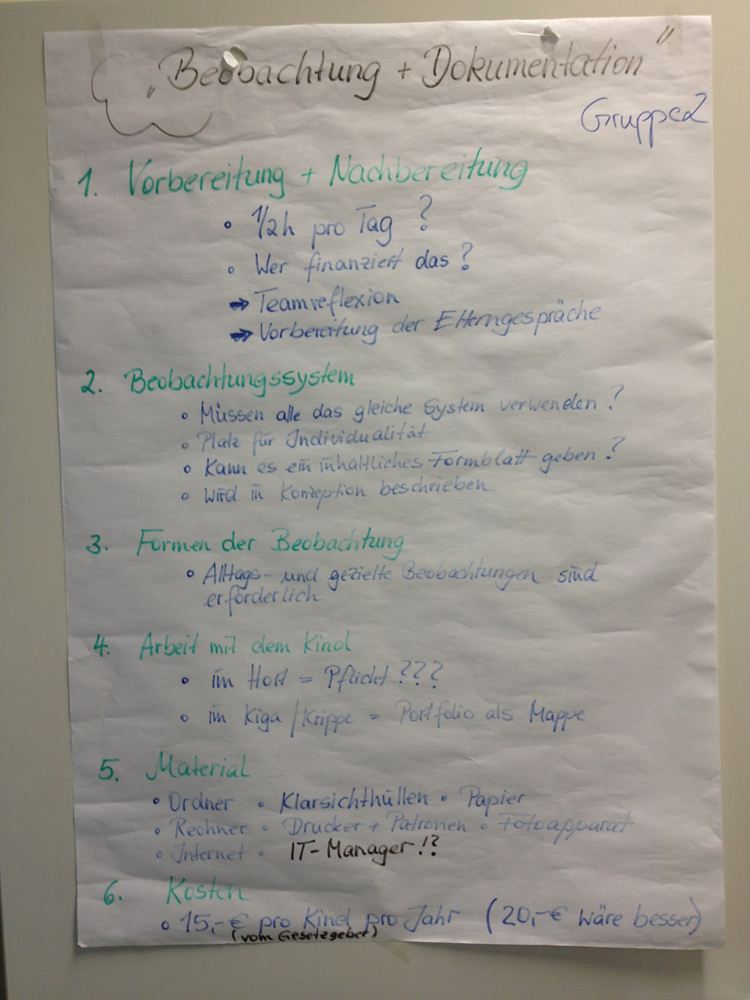 „Beobachtung + Dokumentation"
Gruppe 2
1. Vorbereitung + Nachbereitung
• 1/2 h pro Tag ?
• Wer finanziert das ?
→ Teamreflexion
→ Vorbereitung der Elterngespräche
2. Beobachtungssystem
• Müssen alle das gleiche System verwenden ?
• Platz für Individualität
• Kann es ein inhaltliches Formblatt geben ?
• Wird in Konzeption beschrieben
3. Formen der Beobachtung
• Alltags- und gezielte Beobachtungen sind
erforderlich
4. Arbeit mit dem Kind
• im Hort = Pflicht ???
• im Kiga / Krippe = Portfolio als Mappe
5. Material
• Ordner • Klarsichthüllen • Papier
• Rechner • Drucker + Patronen • Fotoapparat
• Internet • IT-Manager !?
6. Kosten
• 15,-€ pro Kind pro Jahr (20,-€ wäre besser)
(vom Gesetzgeber)